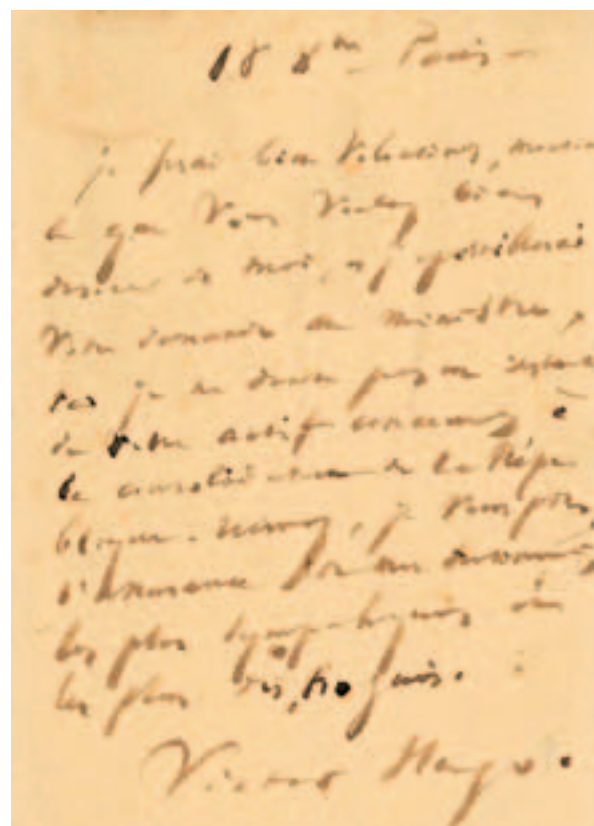 18 8bre Paris
je ferai bien volontiers,
ce que vous voulez bien
de moi, et j'
votre demande au ministre,
je ne doute pas un instant
de votre actif concours à
la consolidation de la Répu
blique. recevez, je vous prie,
l'assurance de mes
les plus sympathiques et
les plus distingués.
Victor Hugo.